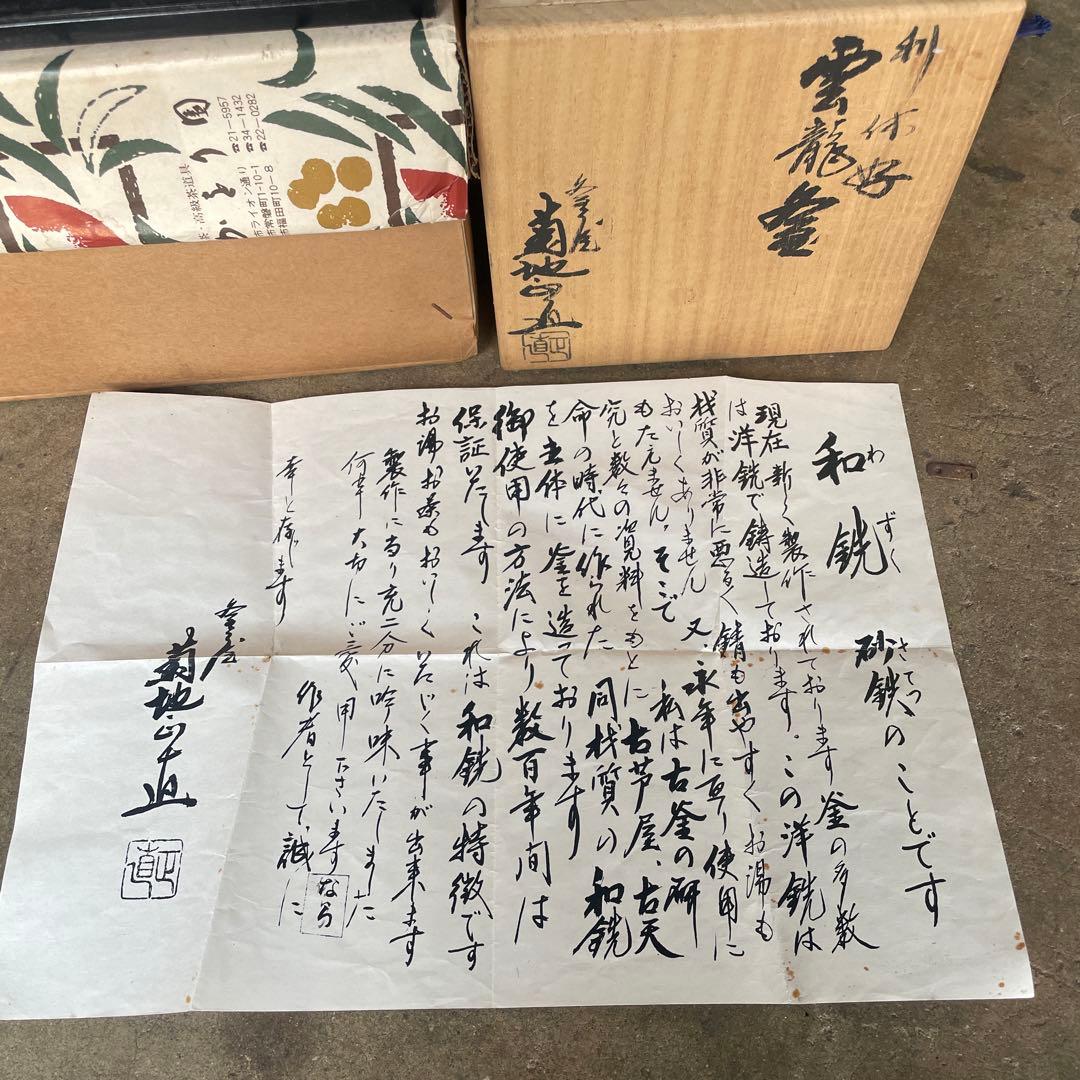 利休好
雲龍釜
釜屋
菊地正直
正直
園
茶・高級茶道具
☎21-5957
☎34-1432
☎22-0282
市ライオン通り
市常磐町1-10-1
市福田町10-8
和銑 砂鉄のことです
わずく さてつ
現在新しく製作されております釜の多数
は洋銑で鋳造しております。この洋銑は
材質が非常に悪るく錆も出やすくお湯も
おいしくありません 又、永年に亘り使用に
もたえません。そこで 私は古釜の研
究と数々の資料をもとに古芦屋、古天
命の時代に作られた同材質の和銑
を主体に釜を造っております
御使用の方法により数百年間は
保証いたします これは和銑の特徴です
お湯お茶もおいしくいただく事が出来ます
製作に当り充二分に吟味いたしました
何卒大切にご愛用下さいますなら
作者として、誠に
幸と存じます
釜屋
菊地正直
正直